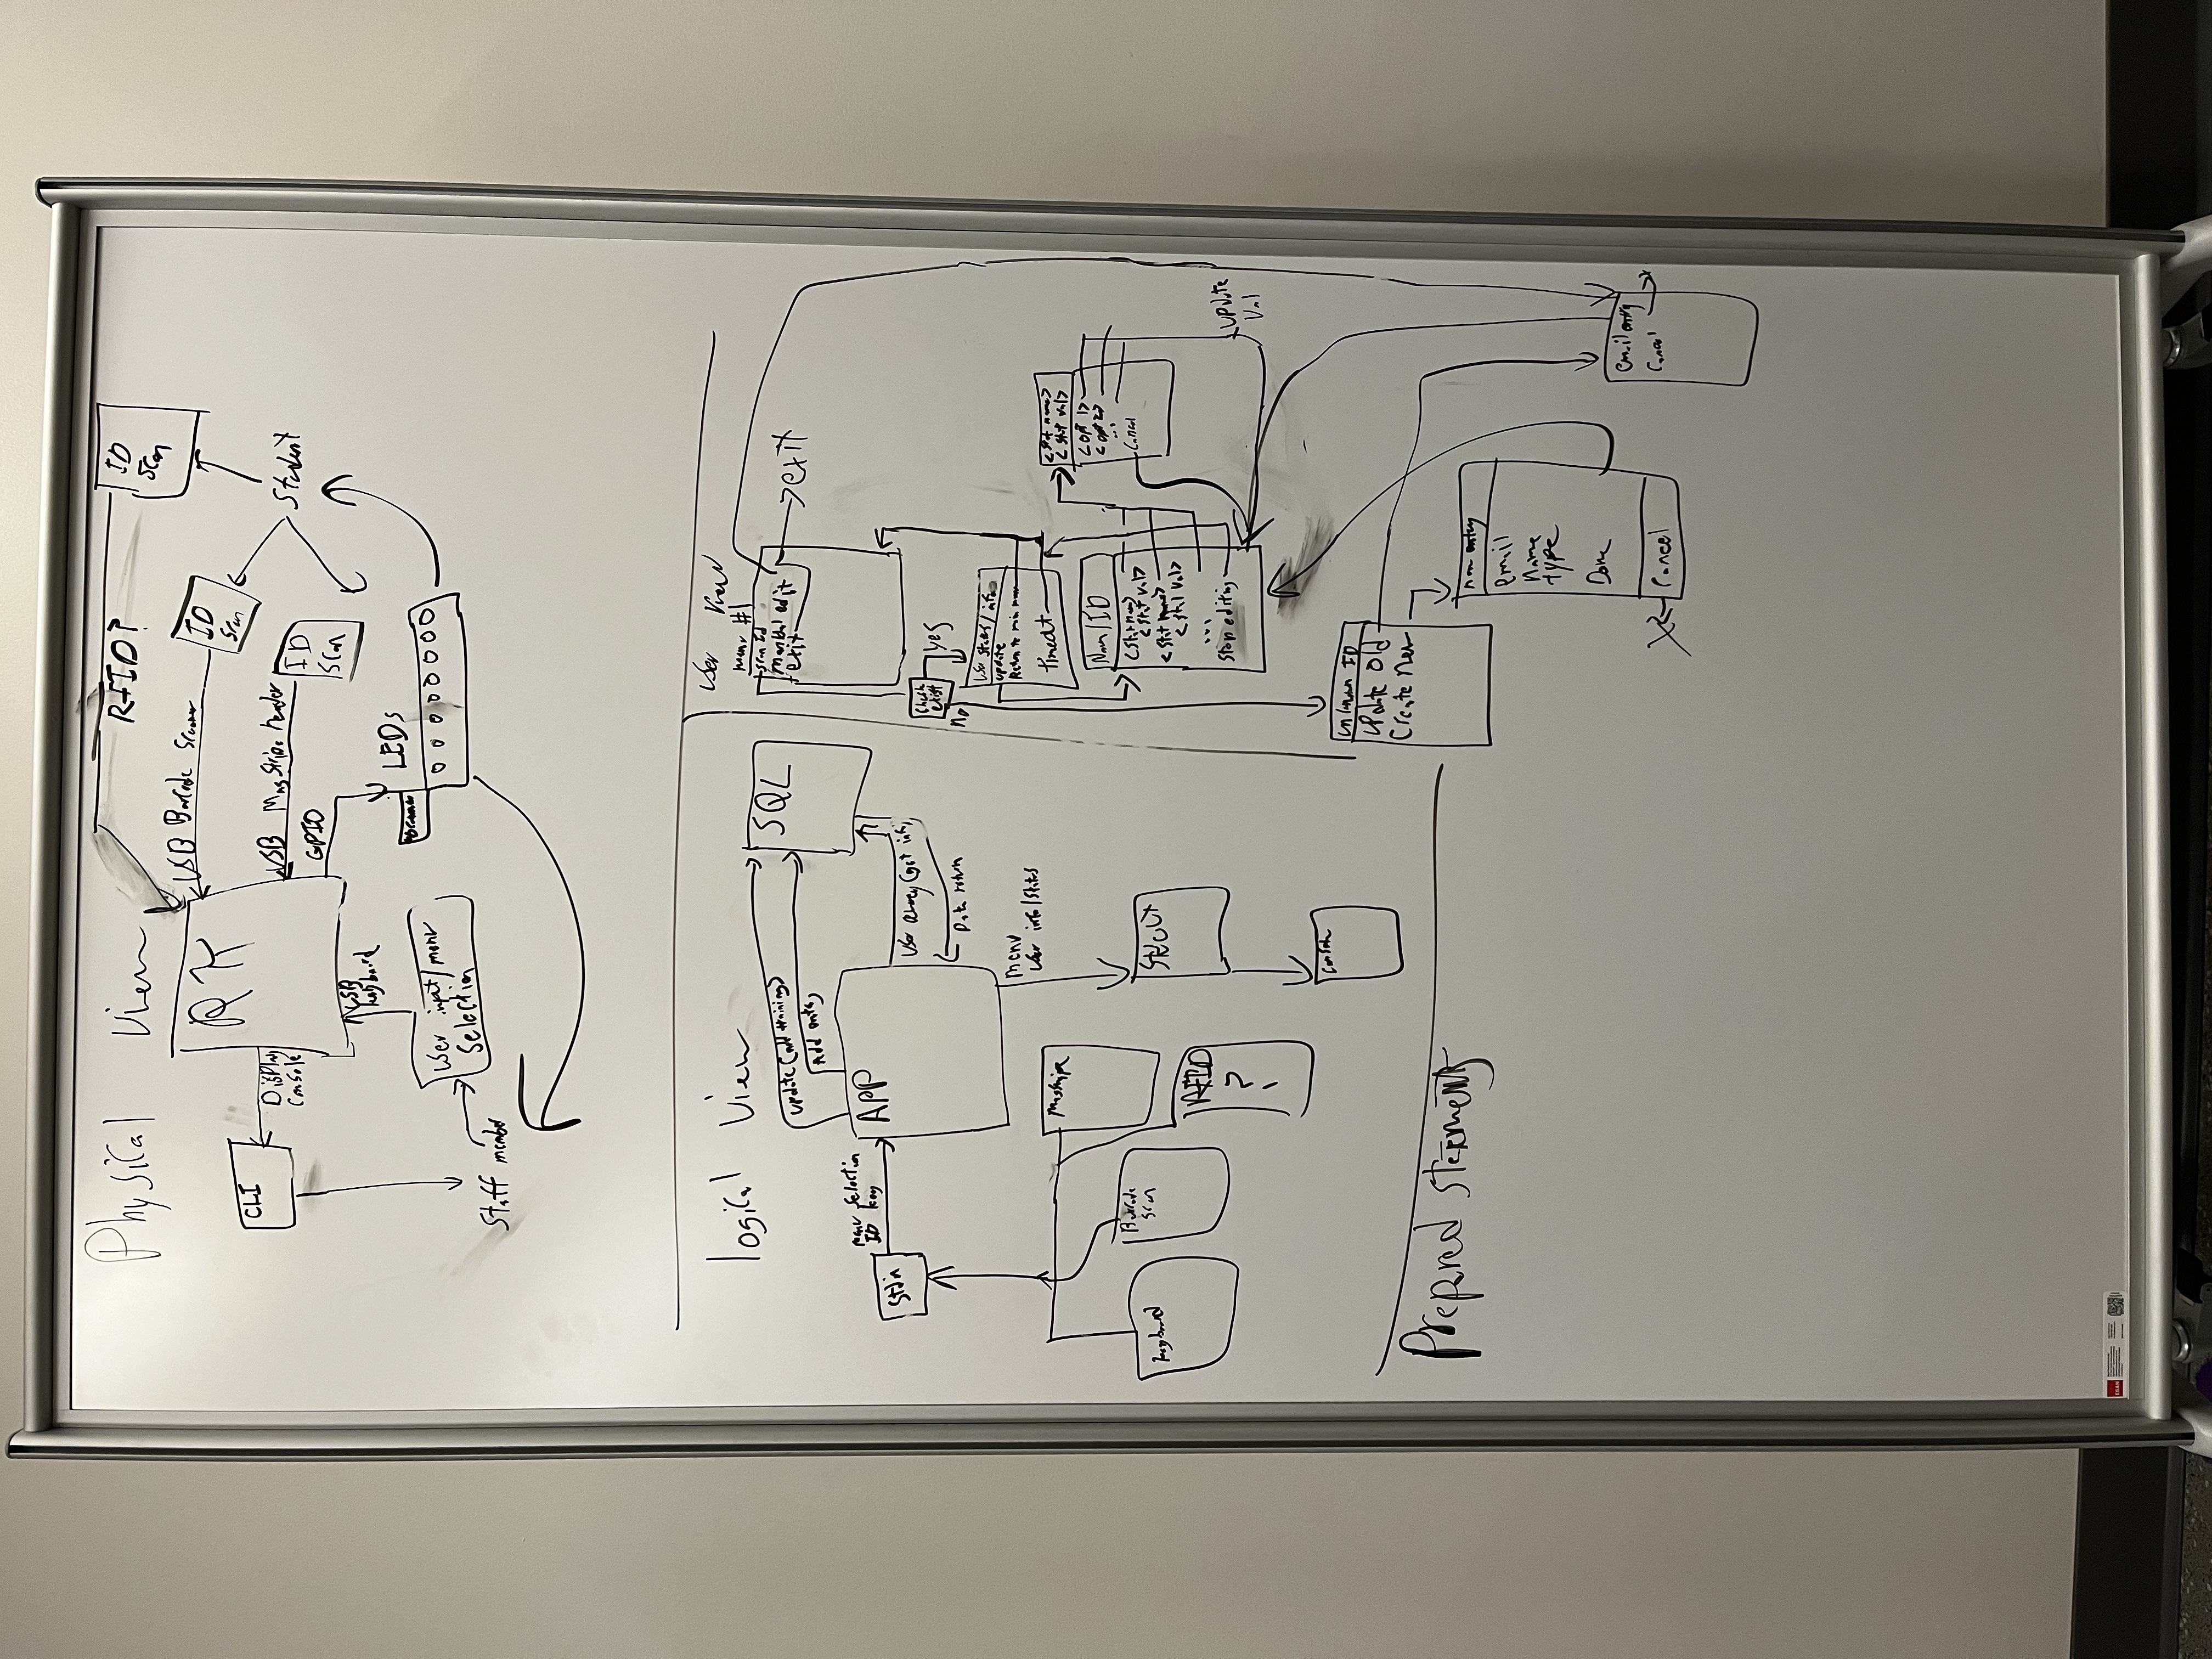 Physical View
RFID?
ID
Scan
USB Barcode Scanner
ID
Scan
R π
CLI
Display
Console
USB Mag Stripe reader
ID
Scan
Student
GPIO
USB
keyboard
LEDs
User input/menu
Selection
Staff member
logical View
SQL
update (add training)
Add entry
menu selection
ID key
Stdin
APP
User Query (get info)
Data return
menu
user info/status
Magstripe
Keyboard
Barcode
Scan
RFID
?
Stdout
Console
Prepared statements
User View
menu #1
Scan Id
Manual edit
exit
exit
Check
exist
yes
no
User status/info
update
Return to main menu
timeout
Nam/ID
<Stat name>
<Stat Val>
<Stat name>
<Stat Val>
...
Stop editing
<Stat name>
<Stat Val>
<opt 1>
<opt 2>
...
Cancel
update
Val
unknown ID
update old
Create new
new entry
email
Name
type
Done
Cancel
X
email entry
Cancel
x
EGAN